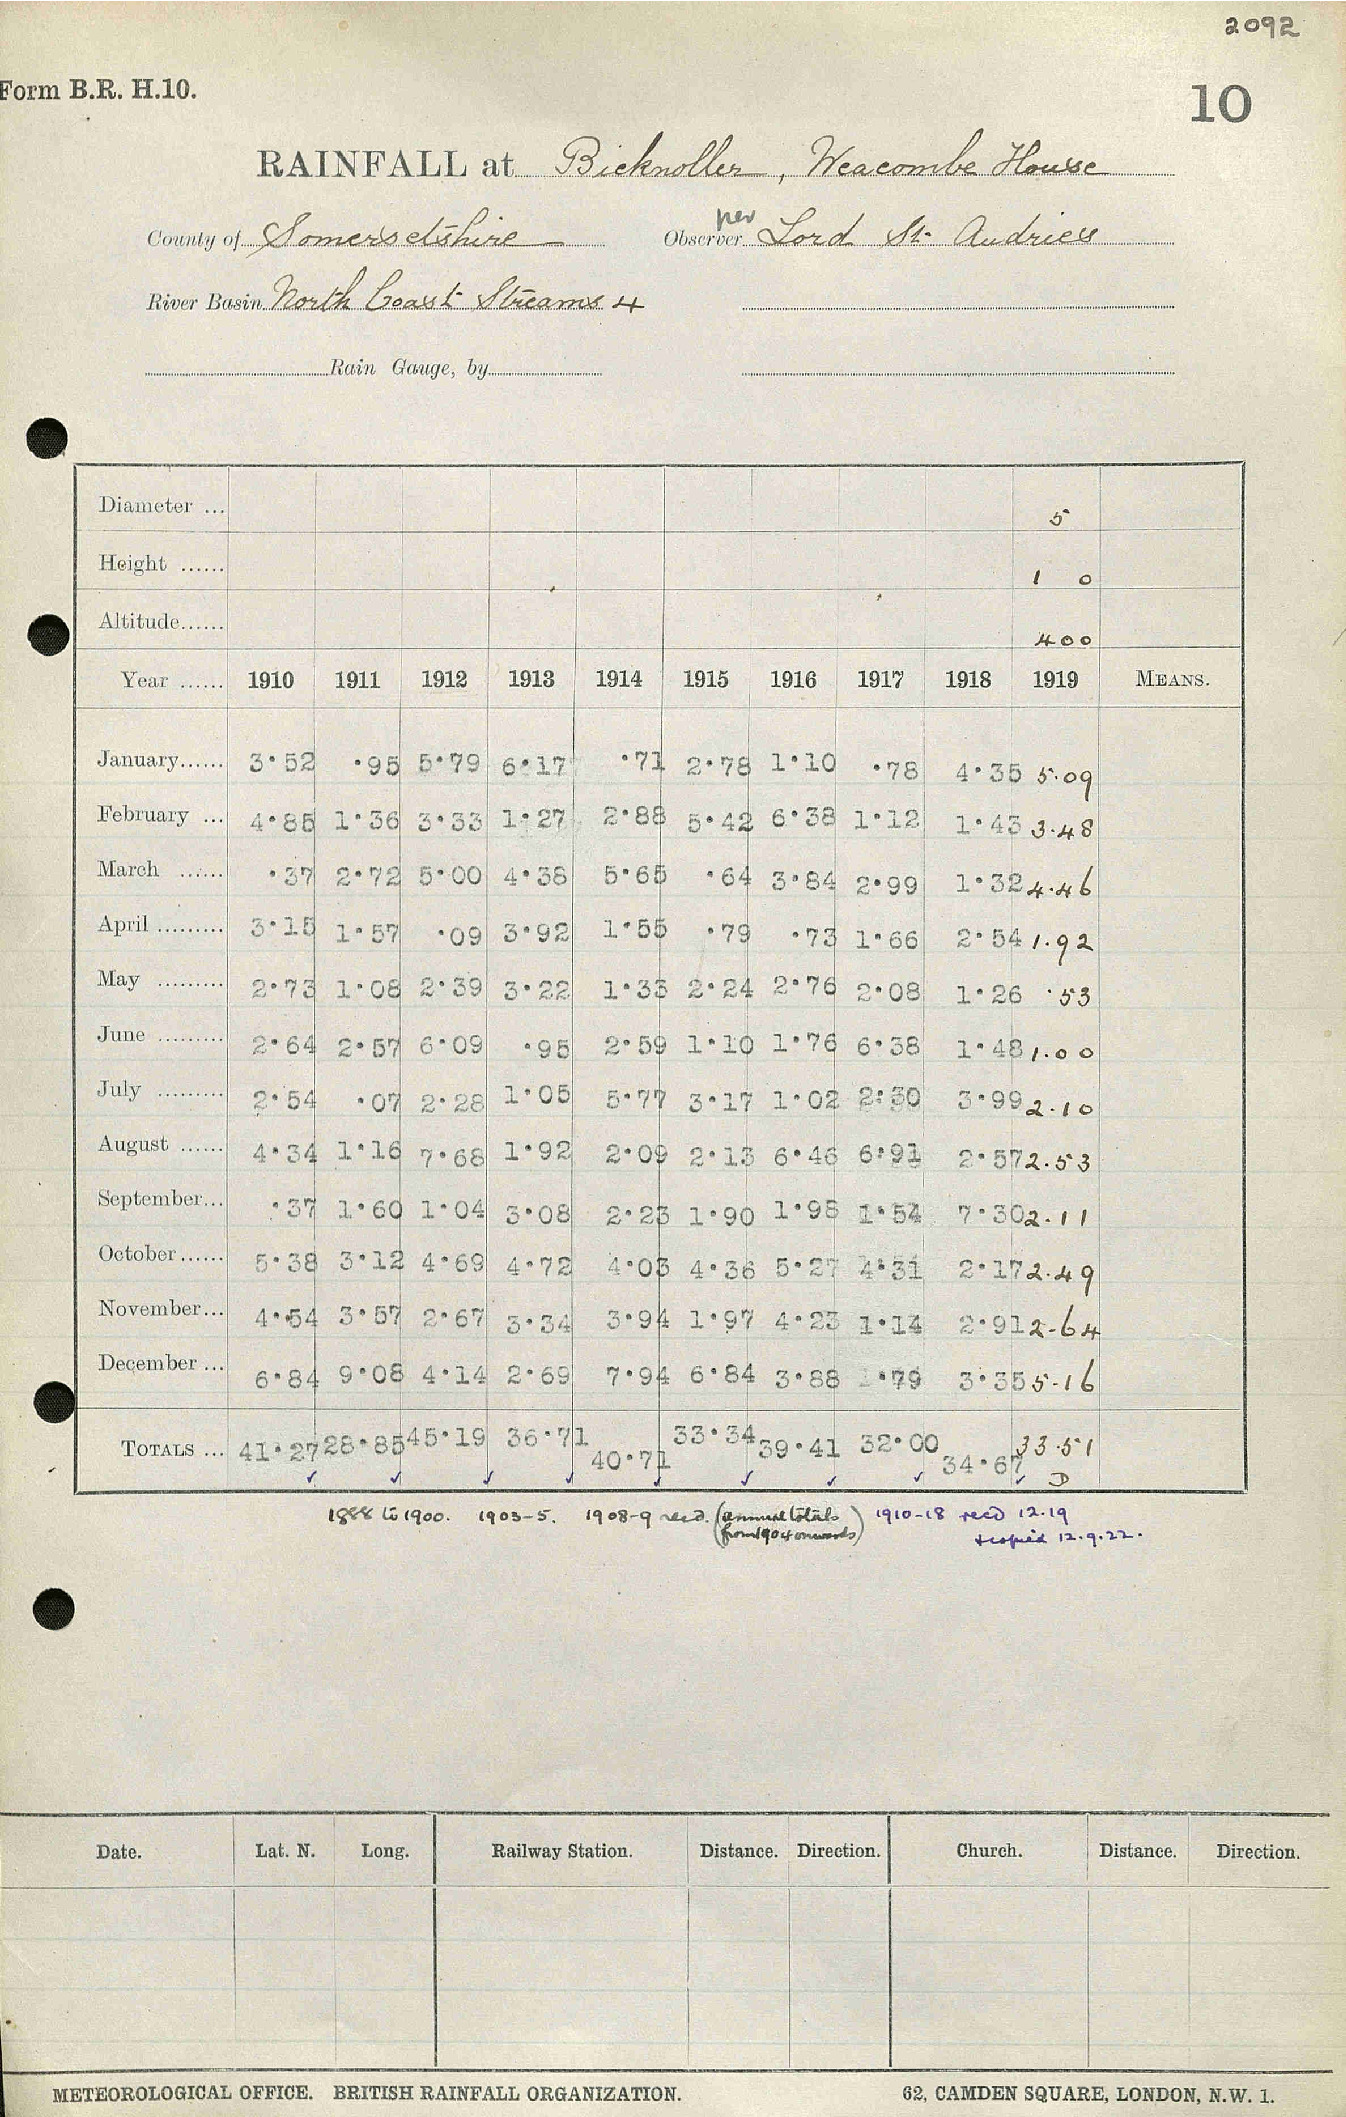 2092
Form B.R. H.10.
10
RAINFALL at Bicknoller, Weacombe House
County of Somersetshire Observer per Lord St. Audries
River Basin North Coast Streams 4
Rain Gauge, by
Diameter ... 5
Height ...... 1 0
Altitude...... 400
Year ...... 1910 1911 1912 1913 1914 1915 1916 1917 1918 1919 MEANS.
January...... 3·52 ·95 5·79 6·17 ·71 2·78 1·10 ·78 4·35 5·09
February ... 4·85 1·36 3·33 1·27 2·88 5·42 6·38 1·12 1·43 3·48
March ...... ·37 2·72 5·00 4·38 5·65 ·64 3·84 2·99 1·32 4·46
April ......... 3·15 1·57 ·09 3·92 1·55 ·79 ·73 1·66 2·54 1·92
May ......... 2·73 1·08 2·39 3·22 1·33 2·24 2·76 2·08 1·26 ·53
June ......... 2·64 2·57 6·09 ·95 2·59 1·10 1·76 6·38 1·48 1·00
July ......... 2·54 ·07 2·28 1·05 5·77 3·17 1·02 2·30 3·99 2·10
August ...... 4·34 1·16 7·68 1·92 2·09 2·13 6·46 6·91 2·57 2·53
September... ·37 1·60 1·04 3·08 2·23 1·90 1·98 1·54 7·30 2·11
October...... 5·38 3·12 4·69 4·72 4·03 4·36 5·27 4·31 2·17 2·49
November... 4·54 3·57 2·67 3·34 3·94 1·97 4·23 1·14 2·91 2·64
December ... 6·84 9·08 4·14 2·69 7·94 6·84 3·88 ·79 3·35 5·16
TOTALS ... 41·27 28·85 45·19 36·71 40·71 33·34 39·41 32·00 34·67 33·51
✓ ✓ ✓ ✓ ✓ ✓ ✓ ✓ ✓ D
1888 to 1900. 1903-5. 1908-9 recd. (annual totals from 1904 onwards) 1910-18 recd 12.19
& copied 12.9.22.
Date. Lat. N. Long. Railway Station. Distance. Direction. Church. Distance. Direction.
METEOROLOGICAL OFFICE. BRITISH RAINFALL ORGANIZATION. 62, CAMDEN SQUARE, LONDON, N.W. 1.